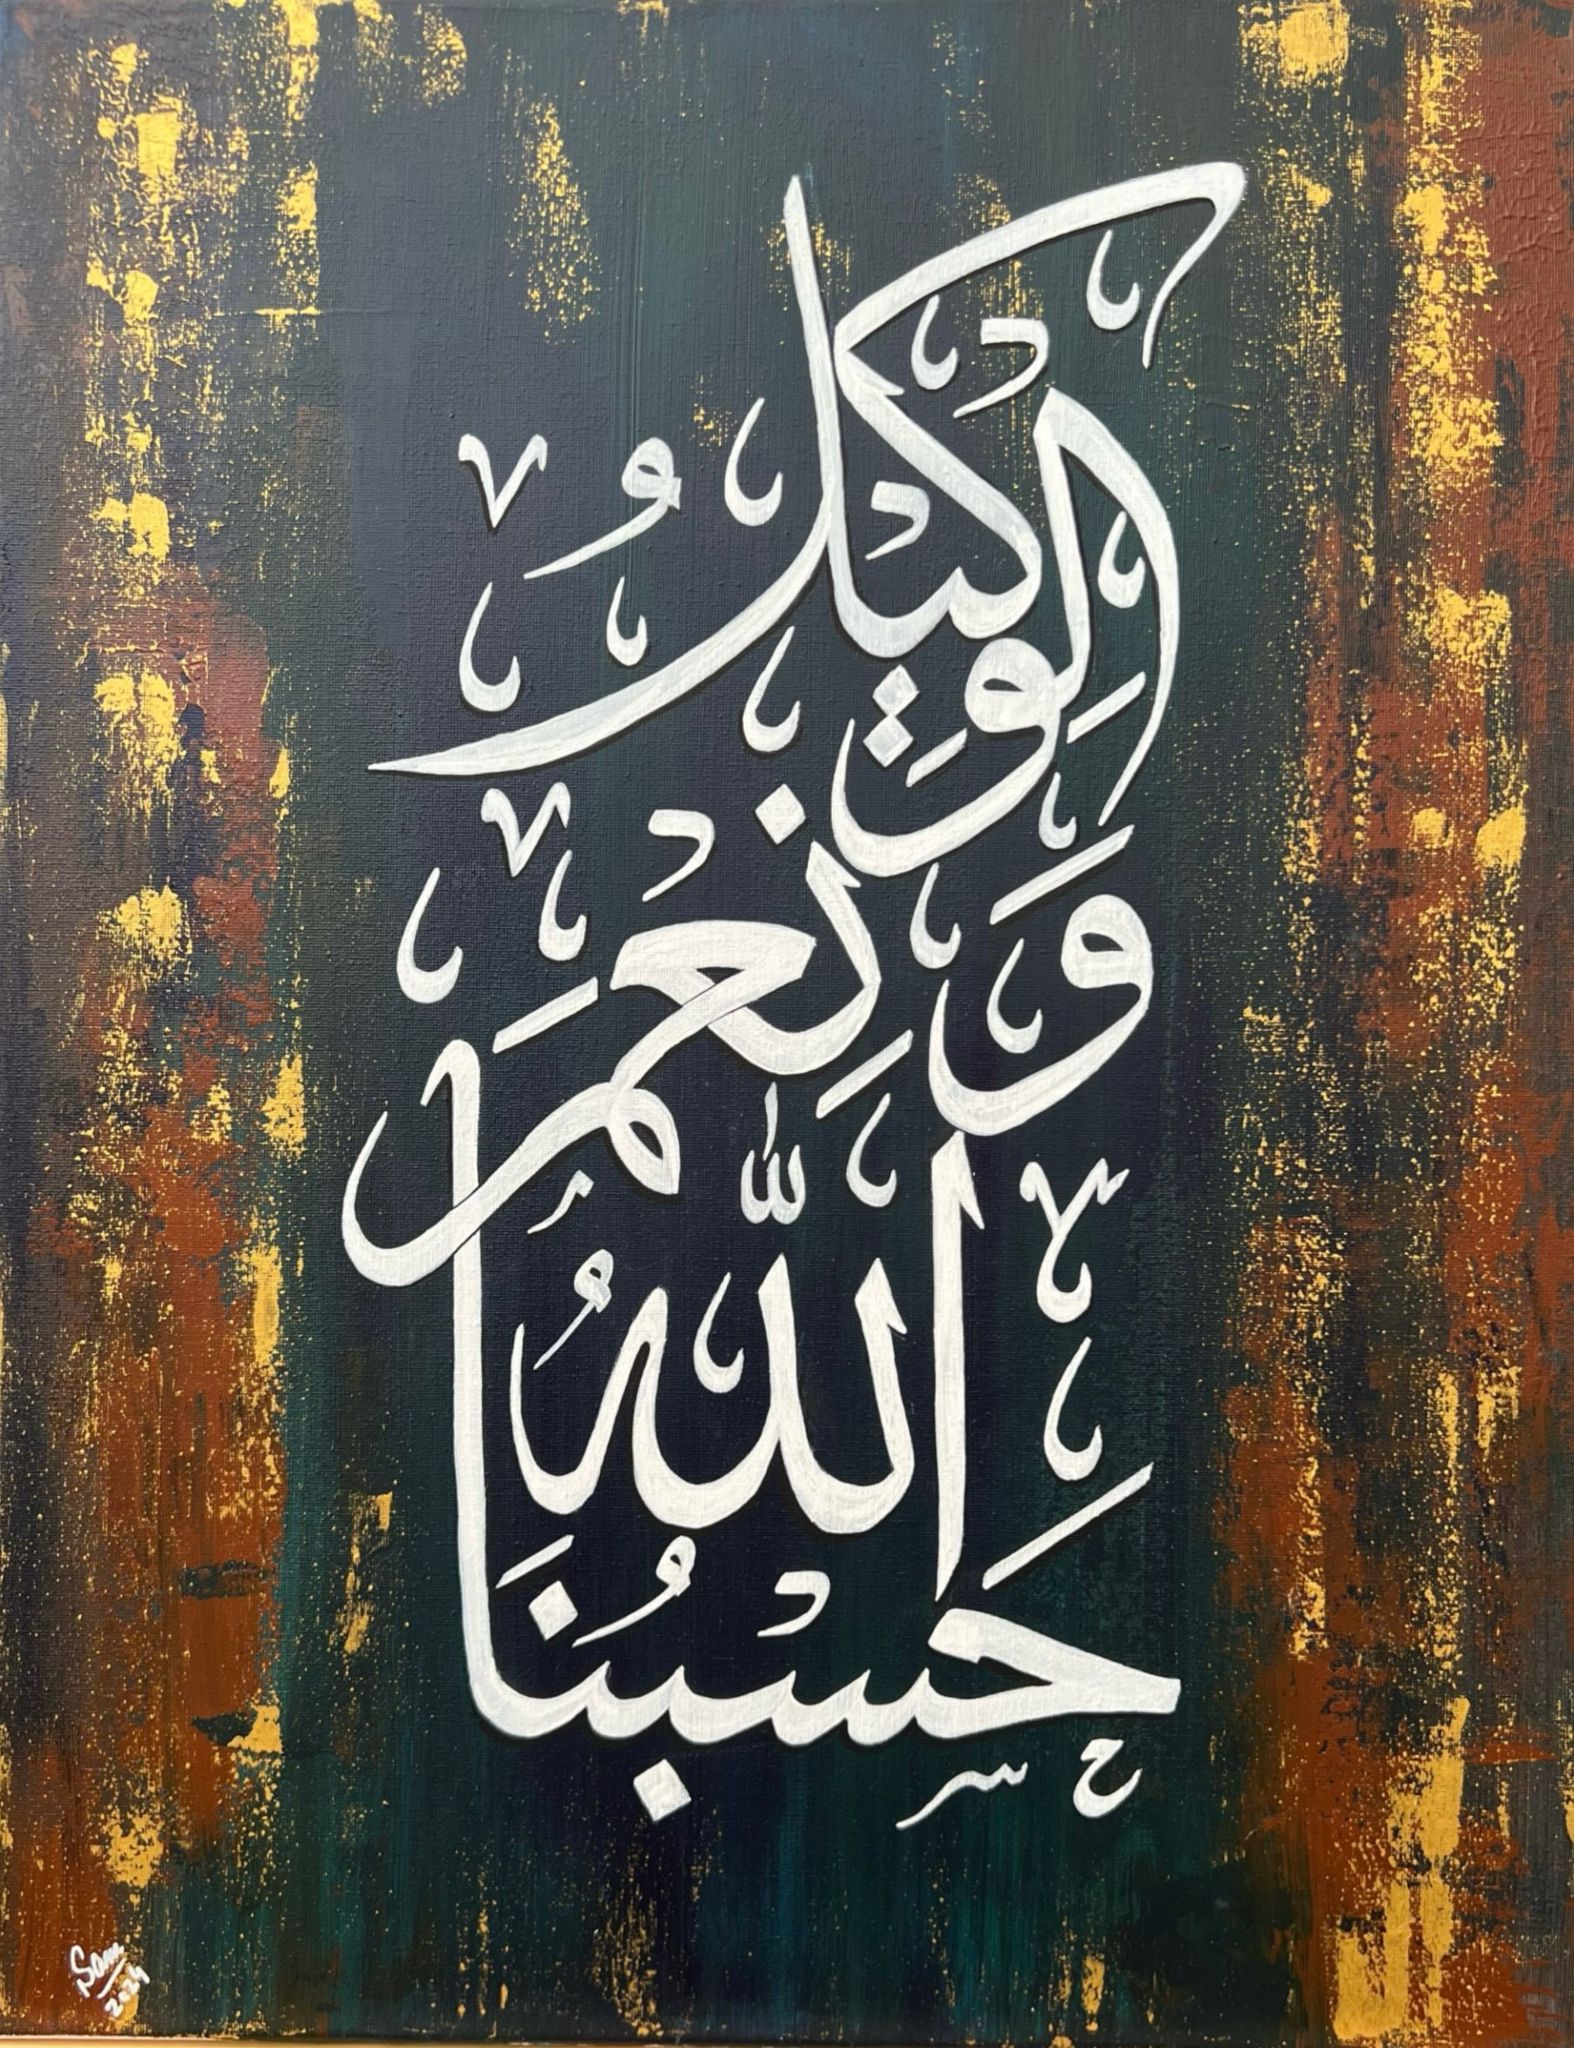 حَسْبُنَا
اللّٰهُ
وَنِعْمَ
الْوَكِيلُ
Sam
2024